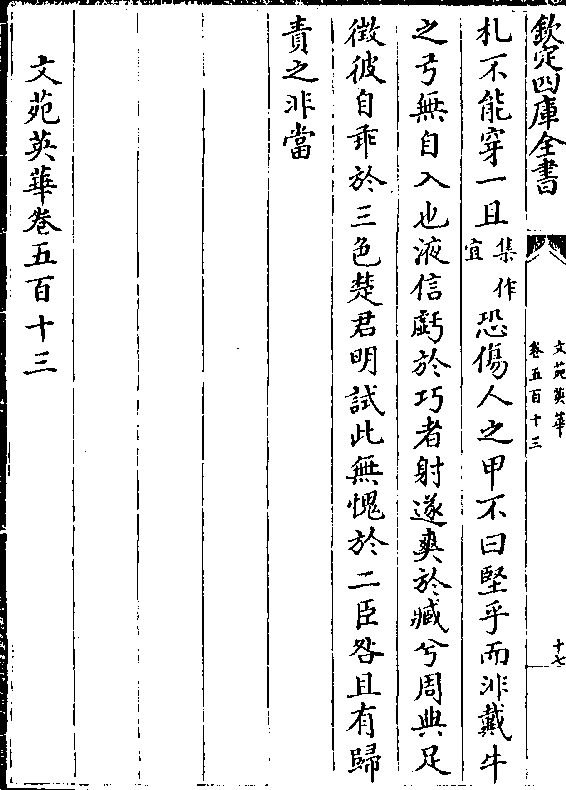 欽定四庫全書
文苑英華
卷五百十三
十七
札不能穿一且集作宜恐傷人之甲不曰堅乎而非戴牛
之弓無自入也液信虧於巧者射遂爽於臧兮周典足
徵彼自乖於三色楚君明試此無愧於二臣咎且有歸
責之非當
文苑英華卷五百十三